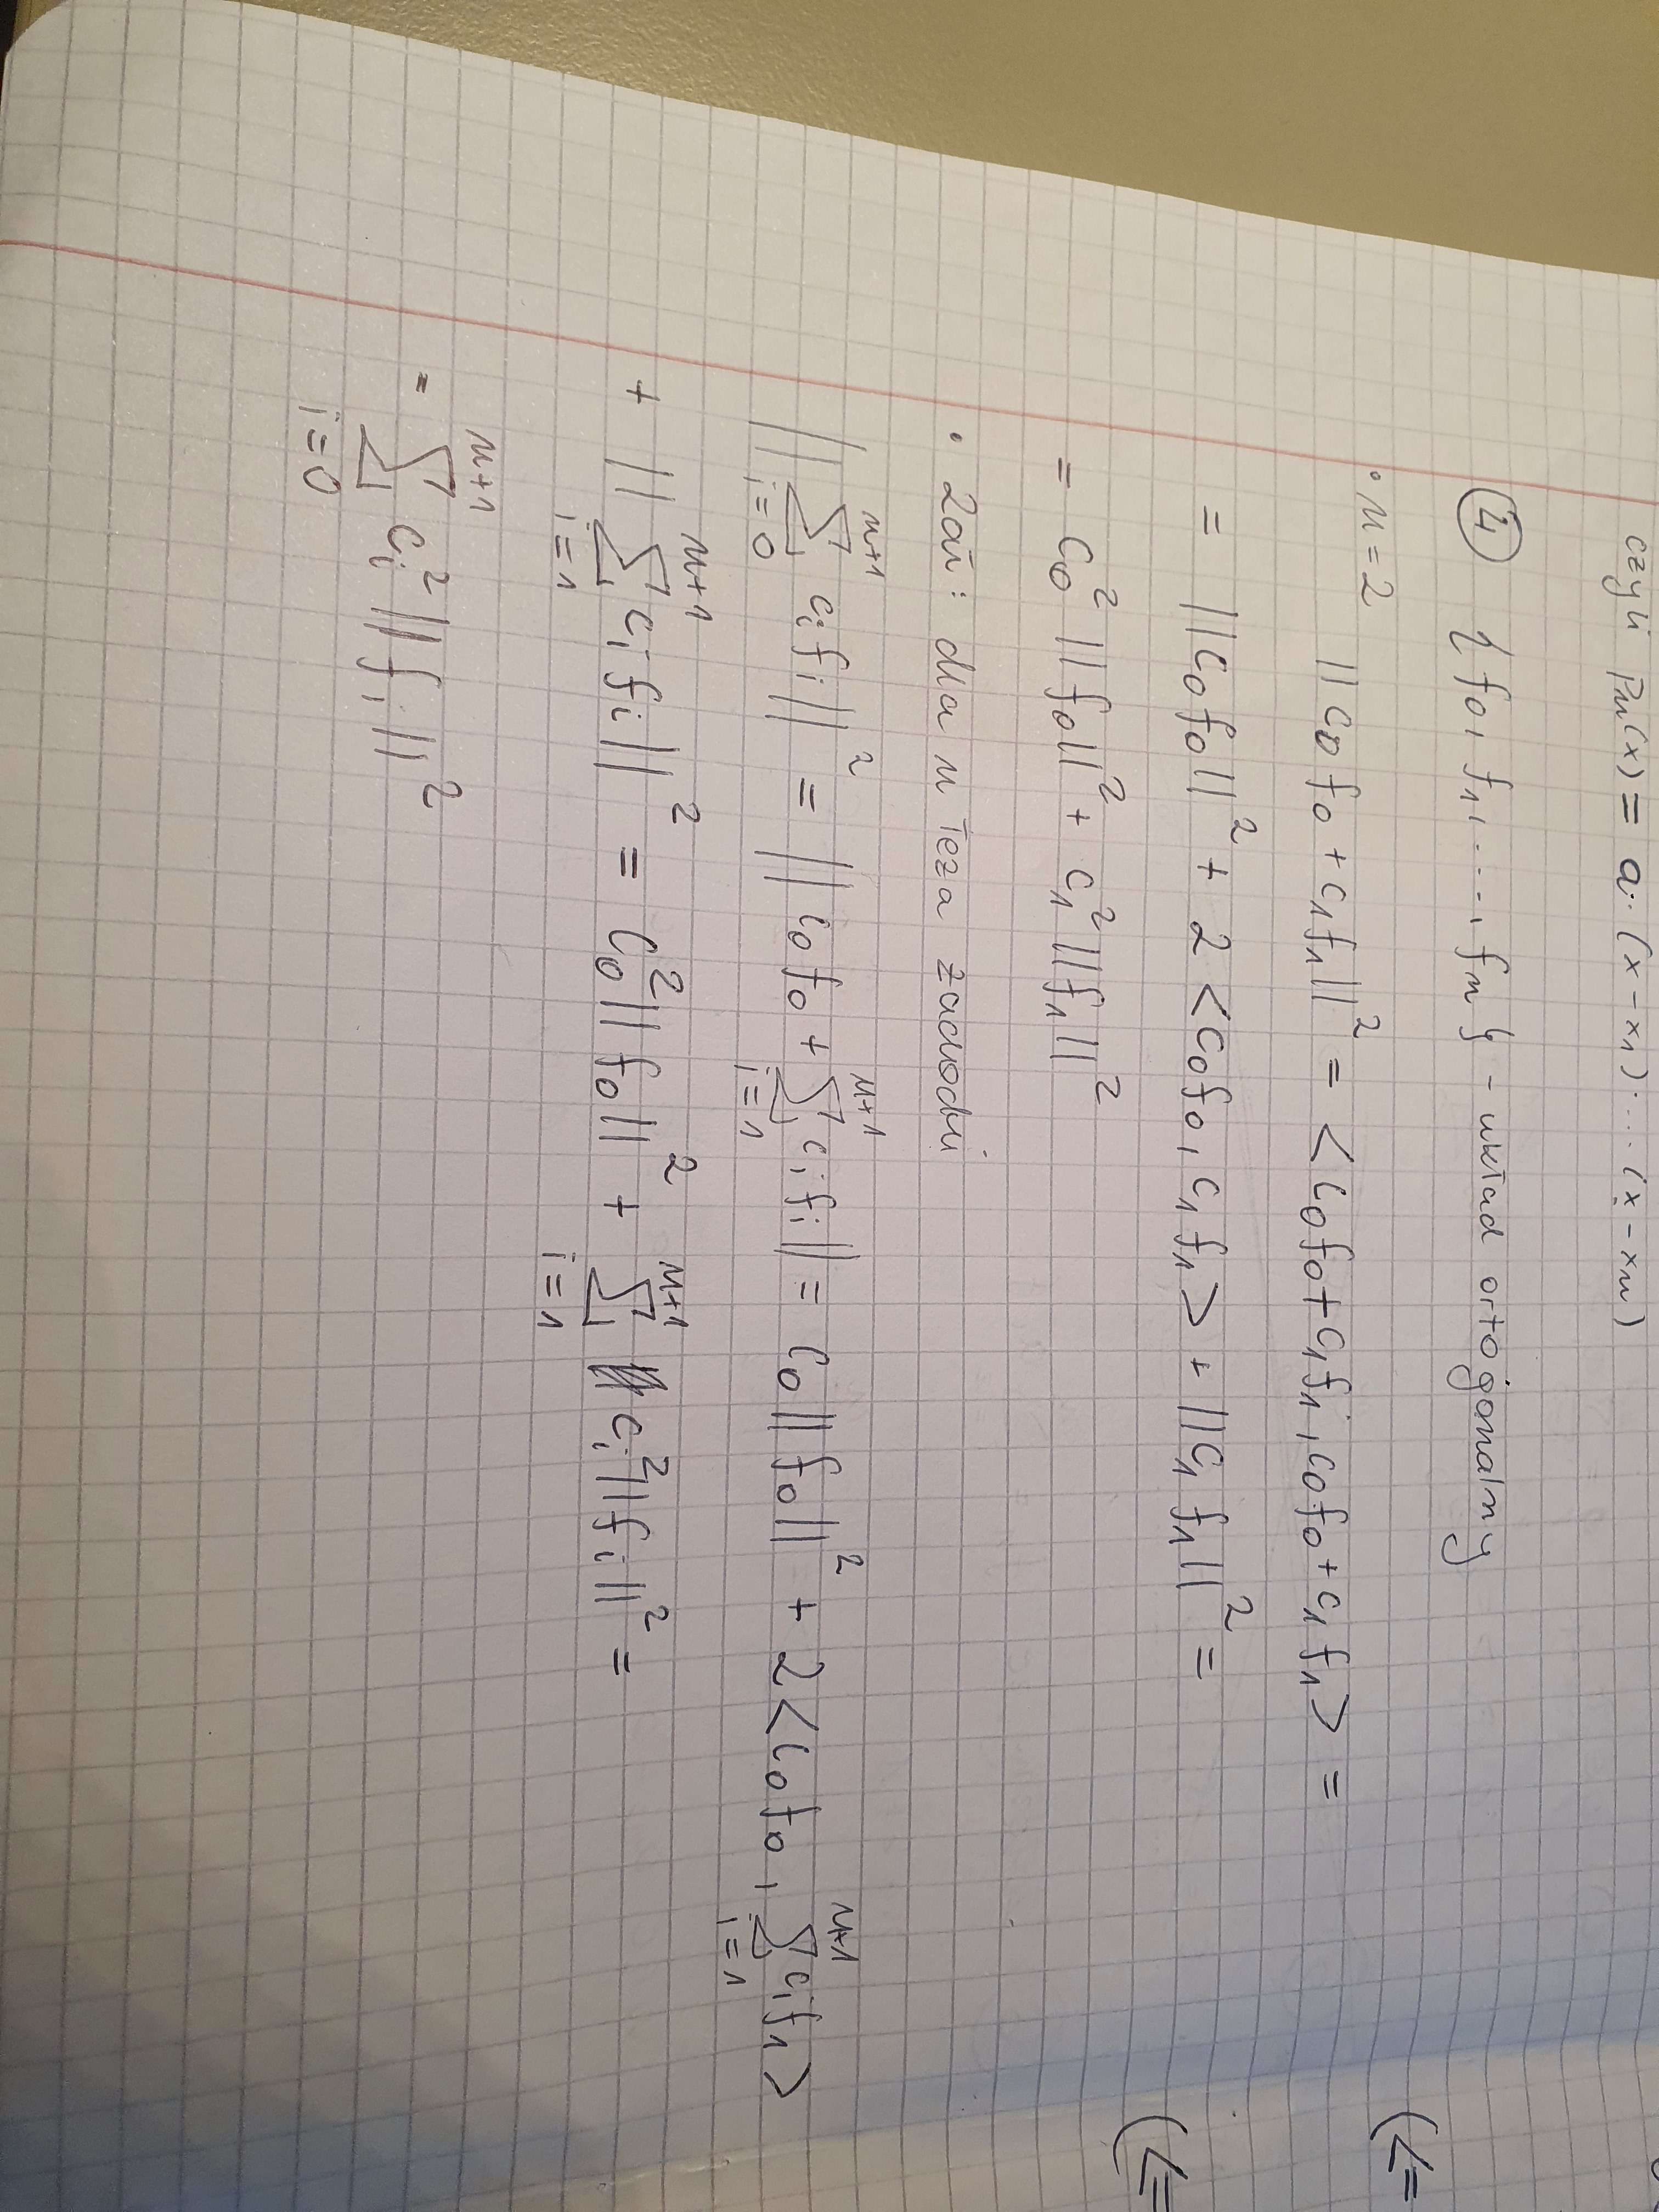 czyli pn(x) = a·(x-x1)·...·(x-xn)
④ {f0, f1, ..., fn} - układ ortogonalny
• n=2
||c0f0 + c1f1||² = <c0f0+c1f1, c0f0+c1f1> =
= ||c0f0||² + 2<c0f0, c1f1> + ||c1f1||² =
= c0²||f0||² + c1²||f1||²
• Zał: dla n teza zachodzi
||∑_{i=0}^{n+1} cifi||² = ||c0f0 + ∑_{i=1}^{n+1} cifi|| = c0||f0||² + 2<c0f0, ∑_{i=1}^{n+1} cif1>
+ ||∑_{i=1}^{n+1} cifi||² = c0²||f0||² + ∑_{i=1}^{n+1} ci²||fi||² =
= ∑_{i=0}^{n+1} ci²||fi||²
(<=
(<=